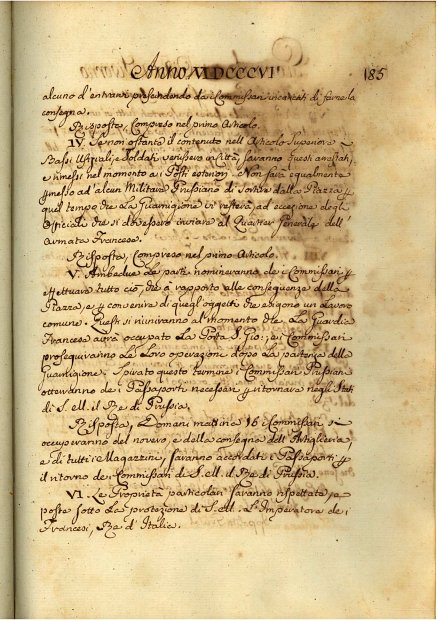 Anno MDCCCVI
185
alcuno d'entrarvi prescindendo dai Commissarj incaricati di farne la
consegna.
Risposta, Compreso nel primo Articolo.
IV. Se non ostante il contenuto nell Articolo Superiore
Bassi Uffiziali, e Soldati venissero in Città, saranno questi arrestati,
e rimessi nel momento ai Posti esteriori. Non sarà egualmente
permesso ad alcun Militare Prussiano di sortire dalla Piazza per
quel tempo che la Guarnigione vi resterà, ad eccezione degli
Officiali che si dovessero inviare al Quartier Generale dell'
Armata Francese.
Risposta, Compreso nel primo Articolo.
V. Ambedue le parti nomineranno dei Commissarj per
effettuare tutto ciò, che à rapporto alle conseguenze della
Piazza, e per convenire di quegl'oggetti che esigono un lavoro
comune. Questi si riuniranno al momento che la Guardia
Francese avrà occupato la Porta S. Gio:, ed i Commissarj
proseguiranno le loro operazioni dopo la partenza della
Guarnigione: Spirato questo termine i Commissarj Prussiani
otterranno dei Passaporti necessarj per ritornare negli Stati
di S. M. il Re di Prussia.
Risposta, Domani mattina 16 i Commissarj si
occuperanno del novero, e della consegna dell'Artiglieria
e di tutti i Magazzini, saranno accordati i Passaporti per
il ritorno dei Commissarj di S. M. il Re di Prussia.
VI. Le Proprietà particolari saranno rispettate, e
poste sotto la protezione di S. M. L'Imperatore dei
Francesi, Re d'Italia.